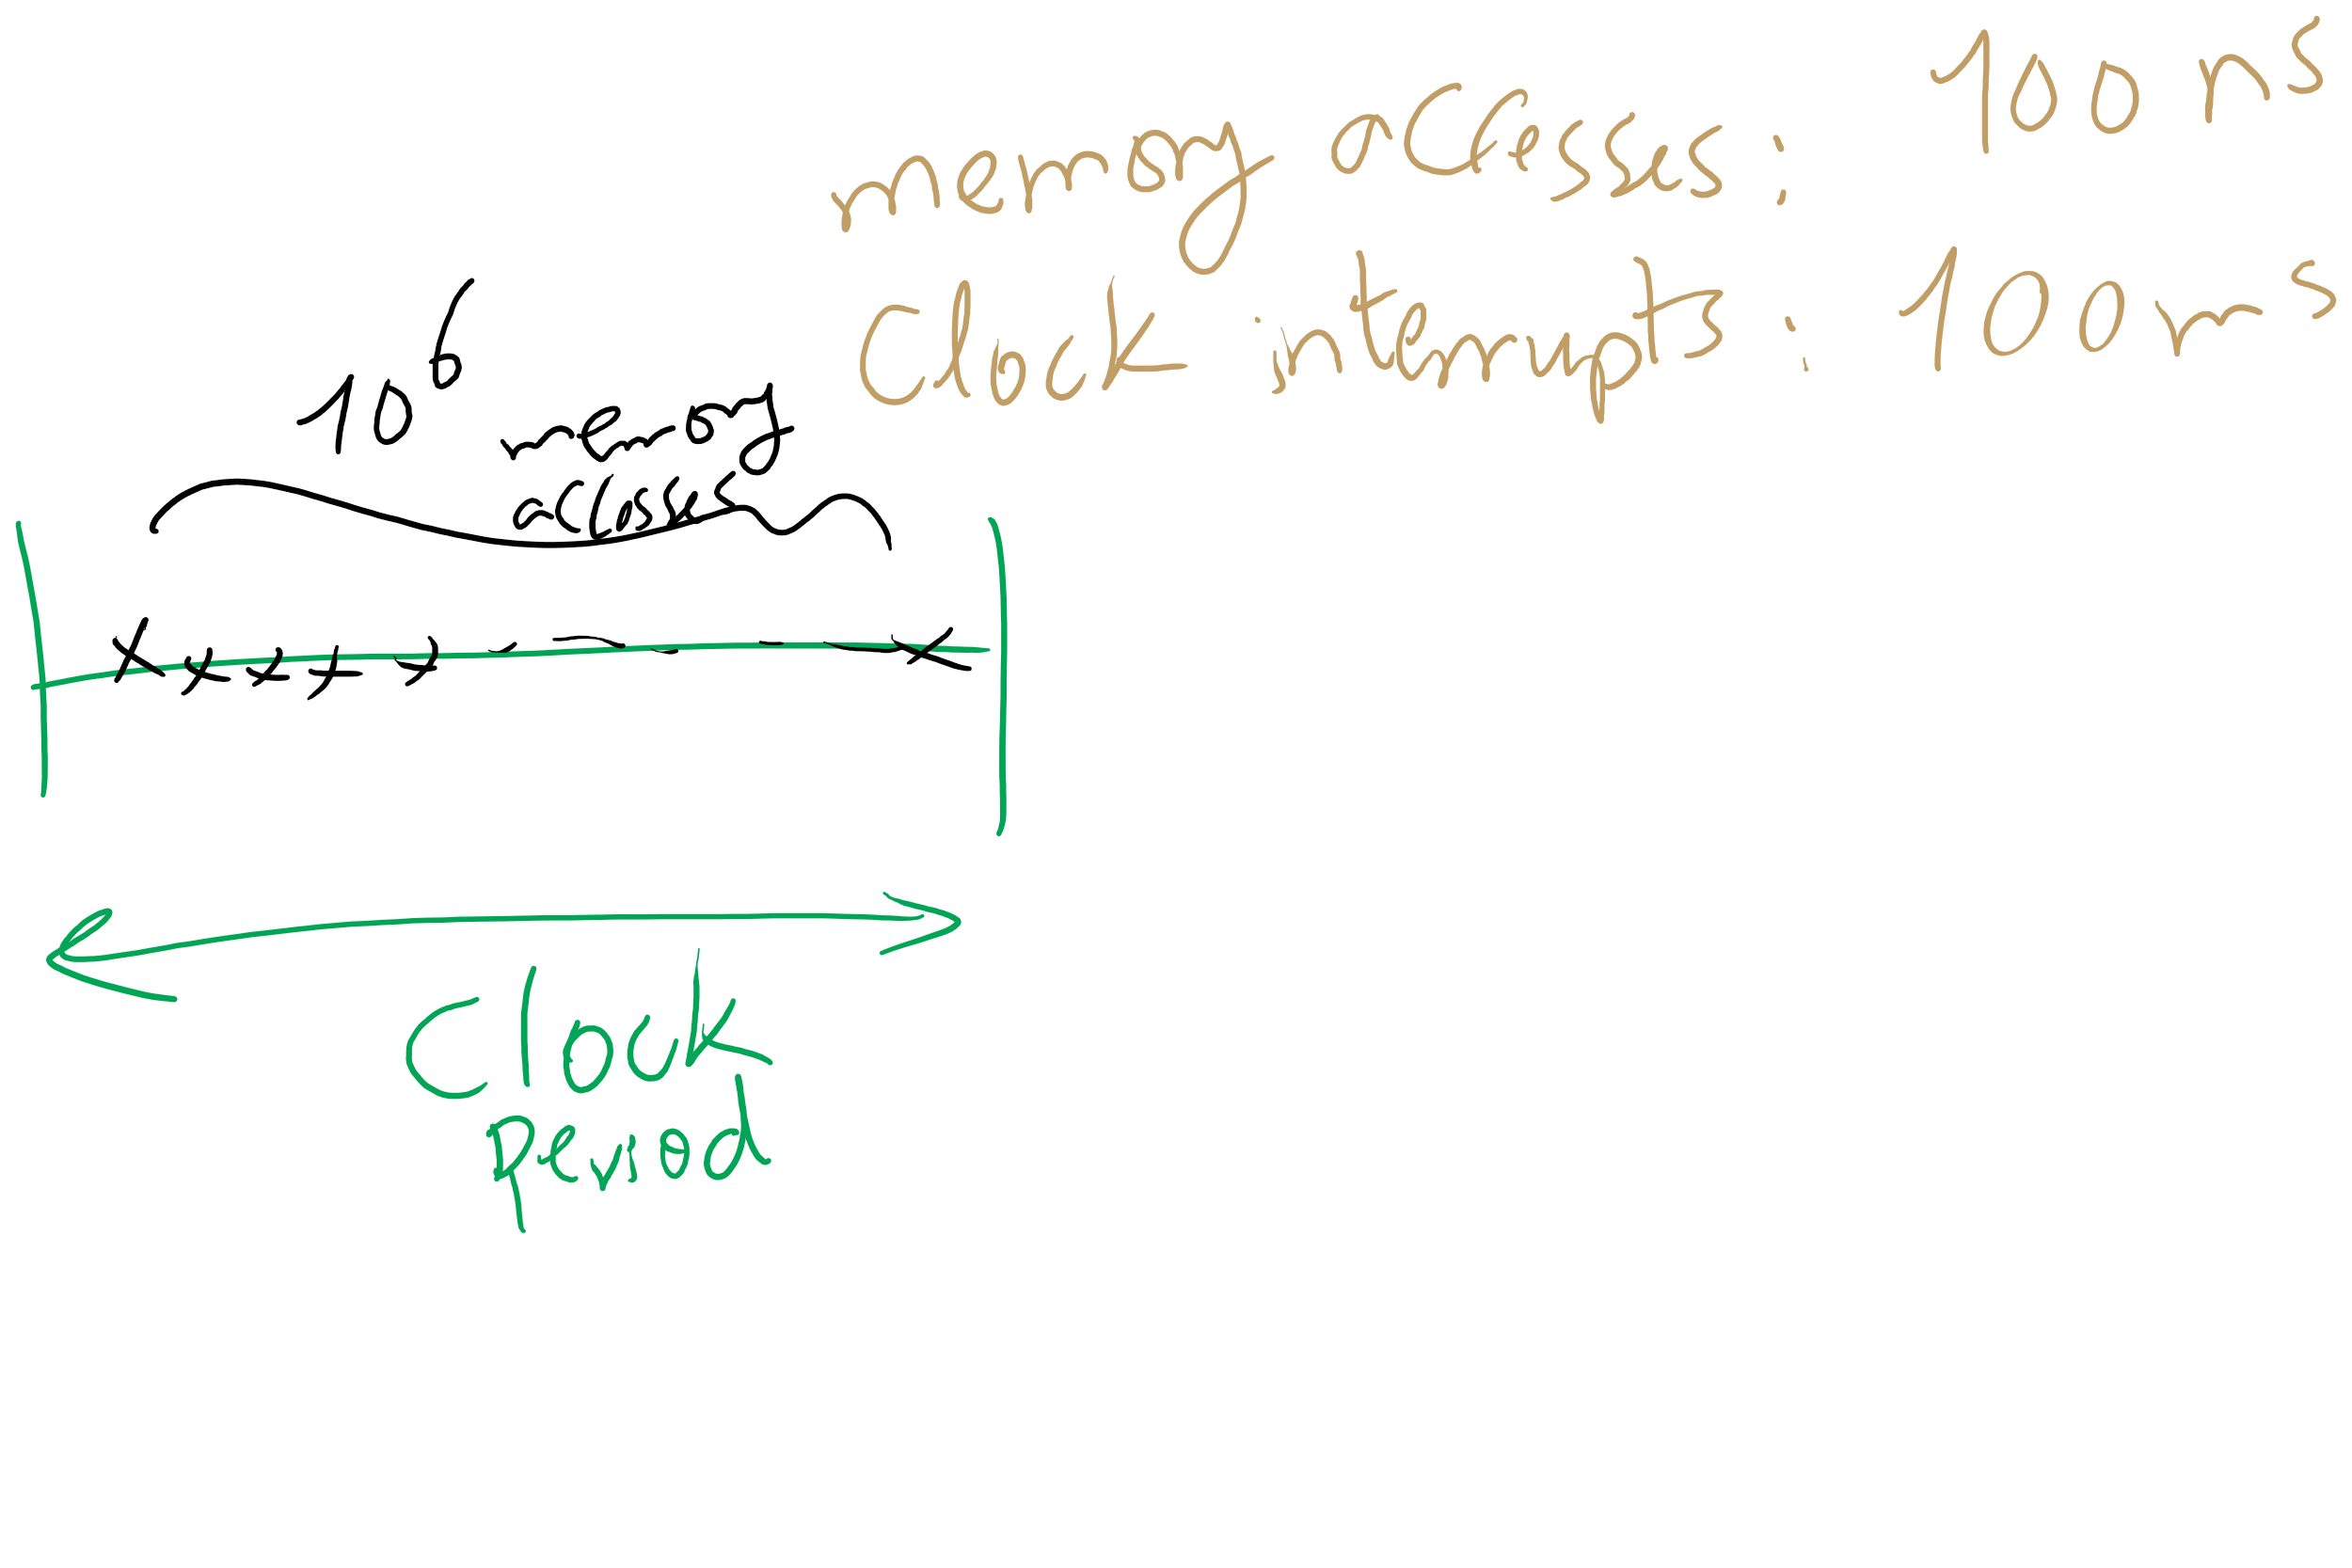 memory accesses: 100 ns
Clock interrupts: 100 ms
10^6 memory
accesses
Clock
period